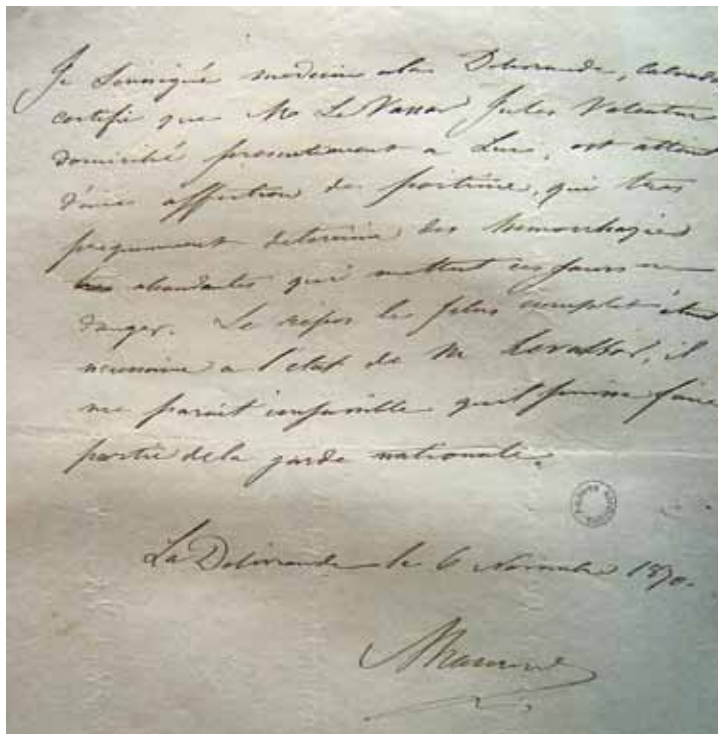 Je soussigné medecin a la Delivrande, Calvados
certifie que Mr Le Vassor Jules Valentin
domicilié presentement a Luc, est atteint
d'une affection de poitrine, qui tres
frequemment determine des hemorrhagies
tres abondantes qui mettent ses jours en
danger. Le repos le plus complet étant
necessaire a l'etat de Mr Levassor, il
me parait impossible qu'il puisse faire
partie de la garde nationale.
La Delivrande le 6 Novembre 1870.